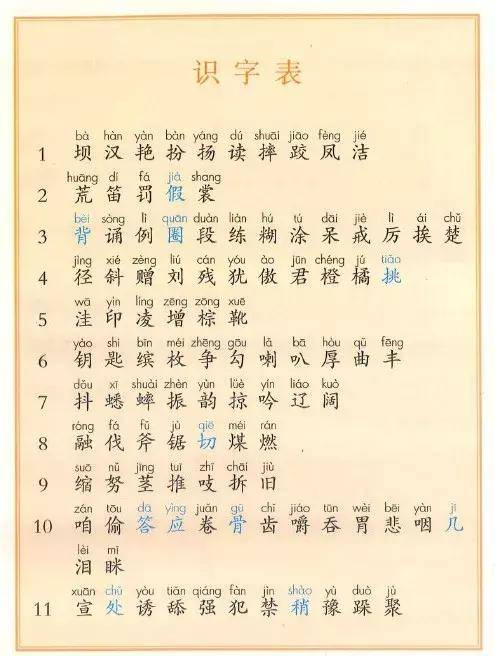 识字表
bà hàn yàn bàn yáng dú shuāi jiāo fèng jié
1 坝 汉 艳 扮 扬 读 摔 跤 凤 洁
huāng dí fá jià shang
2 荒 笛 罚 假 裳
bēi sòng lì quān duàn liàn hú tú dāi jiè lì ái chǔ
3 背 诵 例 圈 段 练 糊 涂 呆 戒 厉 挨 楚
jìng xié zèng liú cán yóu ào jūn chéng jú tiāo
4 径 斜 赠 刘 残 犹 傲 君 橙 橘 挑
wā yìn líng zēng zōng xuē
5 洼 印 凌 增 棕 靴
yào shi bīn méi zhēng gōu lǎ bā hòu qǔ fēng
6 钥 匙 缤 枚 争 勾 喇 叭 厚 曲 丰
dǒu xī shuài zhèn yùn lüè yín liáo kuò
7 抖 蟋 蟀 振 韵 掠 吟 辽 阔
róng fá fǔ jù qiē méi rán
8 融 伐 斧 锯 切 煤 燃
suō nǔ jīng tuī zhī chāi jiù
9 缩 努 茎 推 吱 拆 旧
zán tōu dā yìng juǎn gǔ chǐ jiáo tūn wèi bēi yàn jǐ
10 咱 偷 答 应 卷 骨 齿 嚼 吞 胃 悲 咽 几
lèi mī
泪 眯
xuān chǔ yòu tiǎn qiáng fàn jìn shào yù duò jù
11 宣 处 诱 舔 强 犯 禁 稍 豫 跺 聚